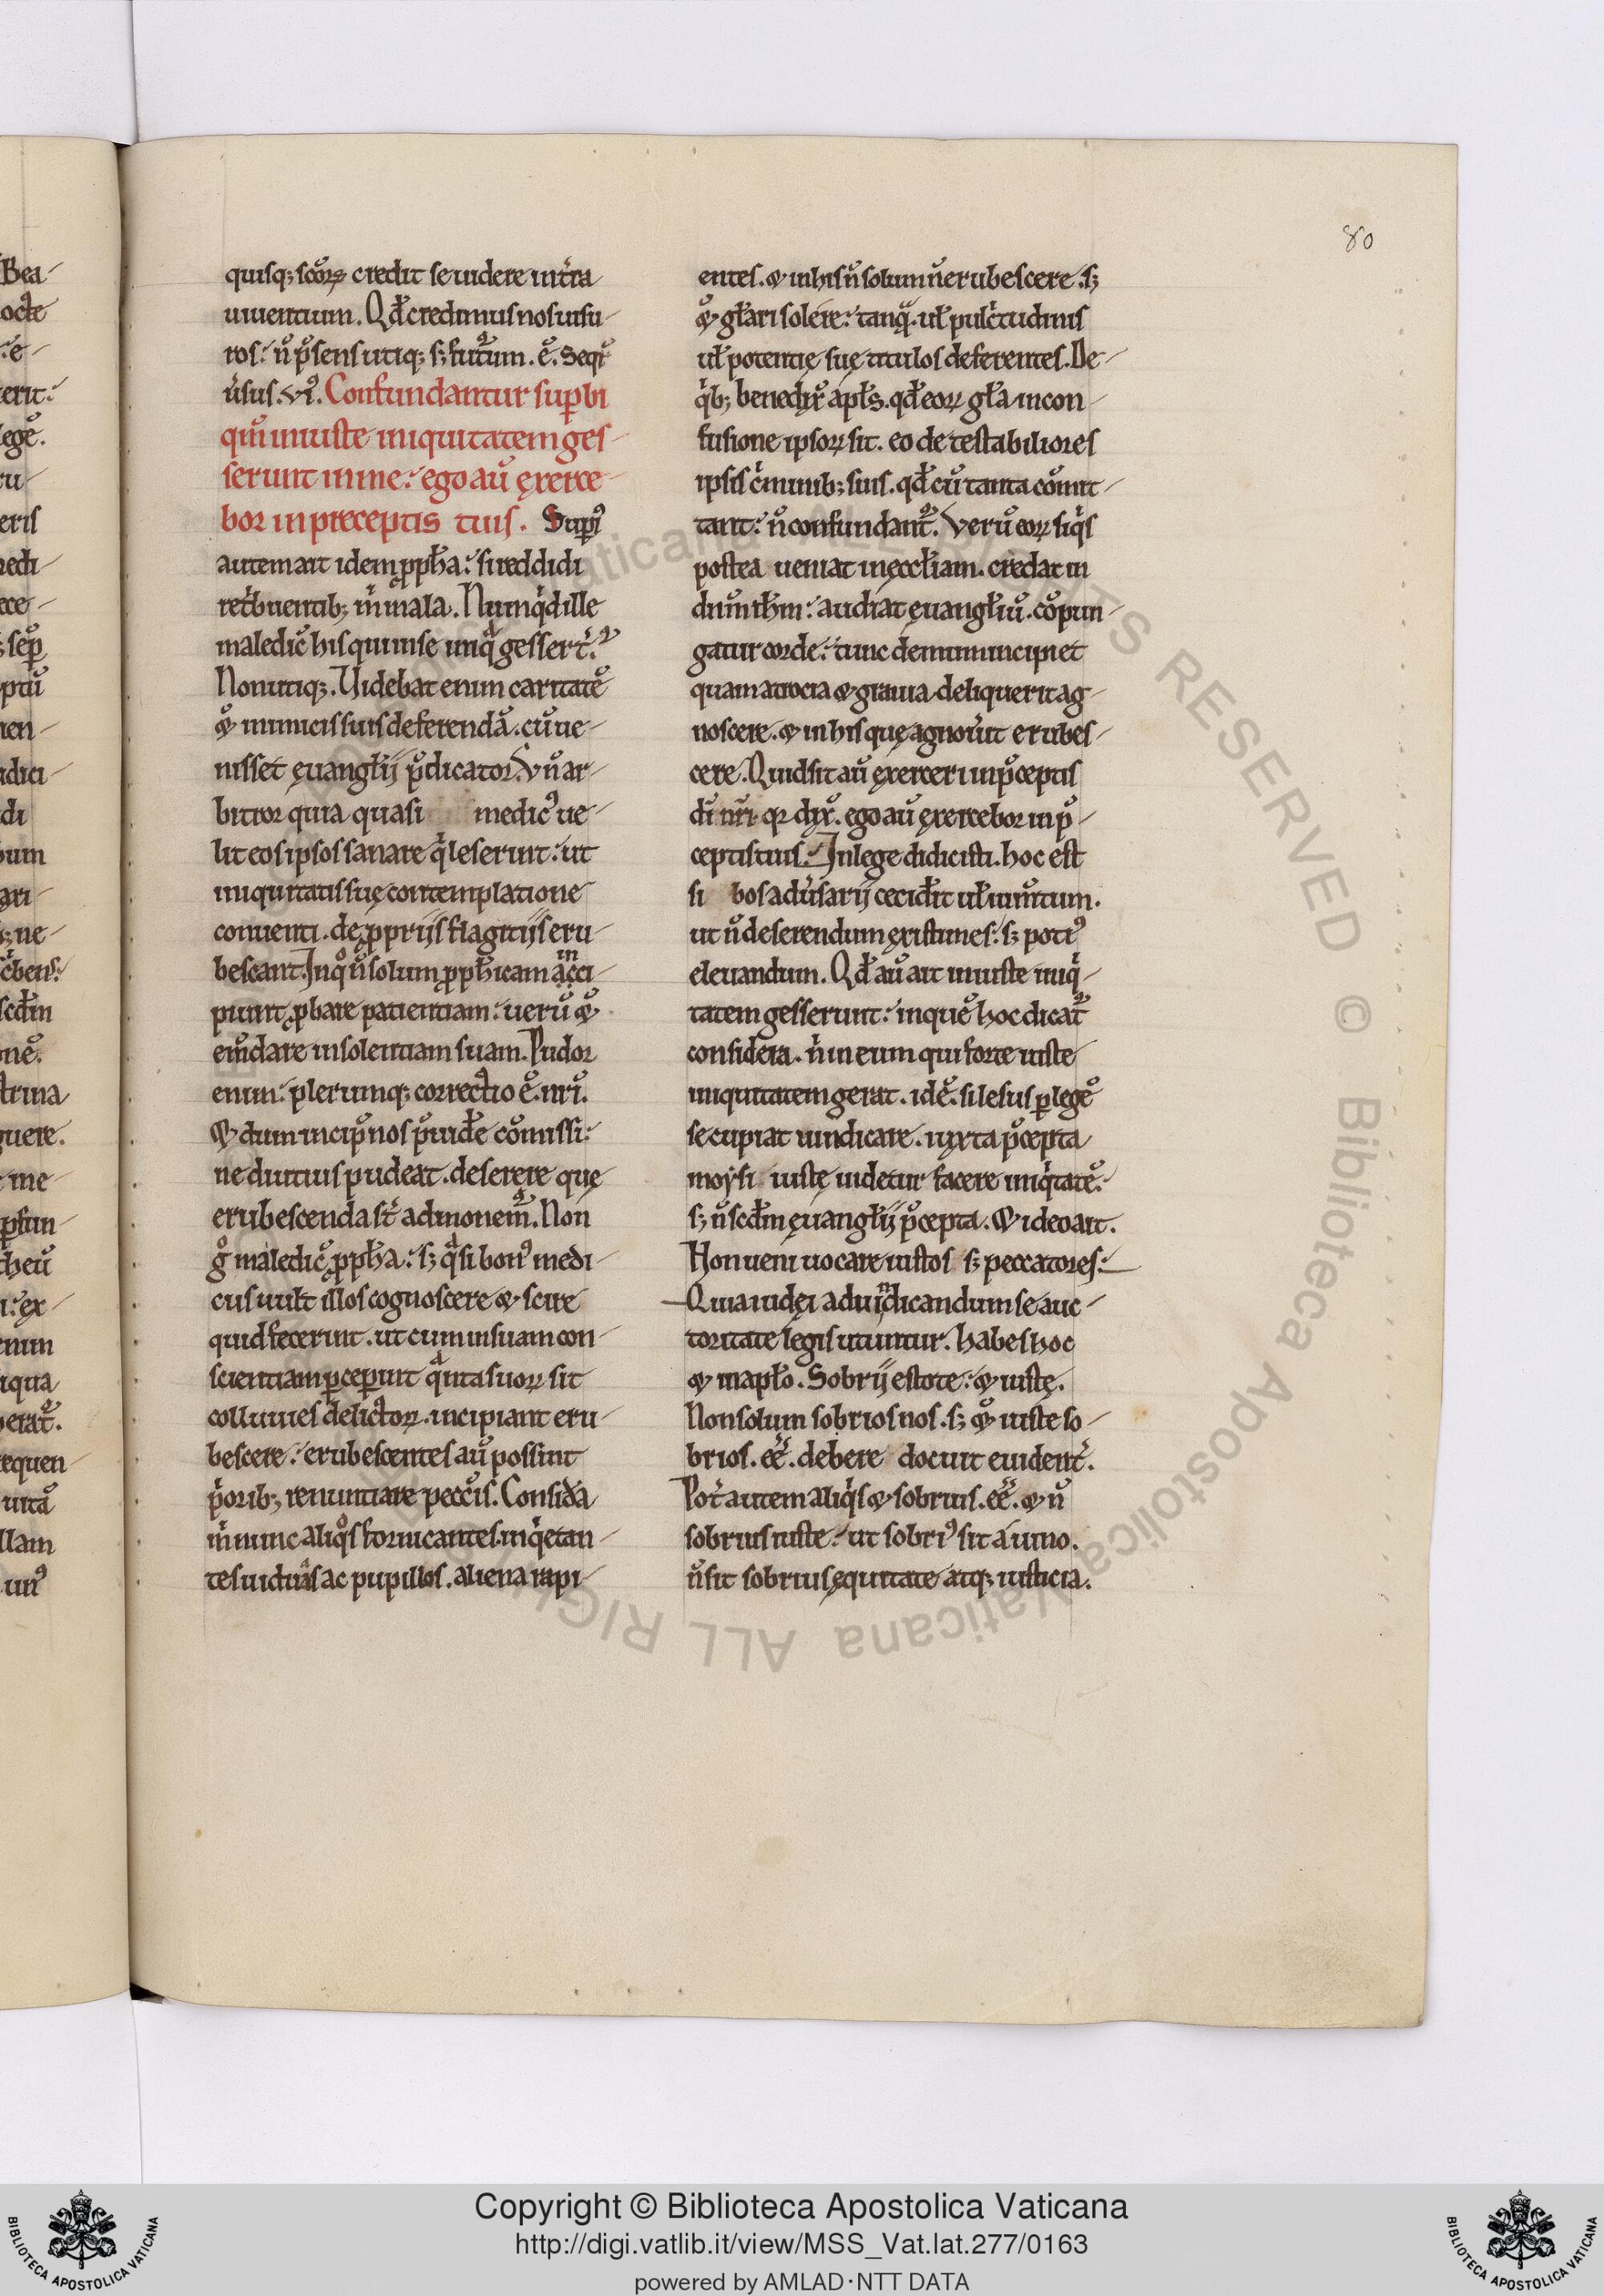 80
quisq; scōꝝ credit se uidere in tͥra
uiuentium. Qd̄ credimus nos uisu
ros: n̄ p̄sens utiq; s; futurum. ē. Seqͥ
ūsus. vi. Confundantur suꝑbi
qm̄ iniuste iniquitatem ges
serunt in me: ego aū exerce
bor in preceptis tuis. Supi
autem ait idem ꝓph̄a: si reddidi
retͥbuentib; m̄ mala. Nunqͥd ille
maledic̄ his qui in se iniqͣ gesserͭ.
Non utiq;. Uidebat enim caritatē
& inimicis suis deferendā. cū ue
nisset euangłii p̄dicator. Vn̄ ar
bitror quia quasi medicꝰ ue
lit eos ipsos sanare qͥ leserunt: ut
iniquitatis suę contemplatione
conuenti. de ꝓpriis flagitiis eru
bescant. In qͦ n̄ solum ꝓph̄icam acci
piunt ꝓbare patientiam: uerū &
em̄dare insolentiam suam. Pudor
enim: plerumq; correctio ē. nr̄i.
& dum incipͥ nos p̄uide cōmissi:
ne diutius pudeat. deserere quę
erubescenda st̄ admonemͬ. Non
gͦ maledic̄ ꝓph̄a: s; qͣsi bonꝰ medi
cus uult illos cognoscere & scire
quid fecerint. ut cum in suam con
scientiam ꝑceperint qͣnta suoꝝ sit
colluuies delictoꝝ. incipiant eru
bescere: erubescentes aū possint
pͥorib; renuntiare pecc̄is. Considͣa
m̄ nunc aliqͦs fornicantes. inqͥetan
tes uiduas ac pupillos. aliena rapi
entes. & in his n̄ solum n̄ erubescere. s;
& gła͞ri solere: tanqͣ. uł pulcͥtudinis
uł potentię suę titulos deferentes. De
qͥb; bene dix̄ apłs. qd̄ eoꝝ gła in con
fusione ipsoꝝ sit. eo detestabiliores
ipsis cͥminib; suis. qd̄ cū tanta cōmit
tant: n̄ confundantͬ. Verū eoꝝ siqͥs
postea ueniat in ęccłiam. credat in
dn̄m ih̄m: audiat ęuangłiū. cōpun
gatur corde: tunc demum incipiet
quam atrocia & grauia deliquerit ag
noscere. & in his quę agnorͥt erubes
cere. Quid sit aū exerceri in p̄ceptis
dī nr̄i qꝛ dix̄. ego aū exercebor in p̄
ceptis tuis: In lege didicisti. hoc est
si bos adūsarii cecidͥit uł iumͭtum.
ut n̄ deserendum existimes: s; potiꝰ
eleuandum. Qd̄ aū ait iniuste iniqͥ
tatem gesserunt: in quē hoc dicatͬ
considera. n̄ in eum qui forte iuste
iniquitatem gerat. idē. si lesus ꝑ legē
se cupiat uindicare. iuxta p̄cepta
moysi iuste uidetur facere iniqͥtatē:
s; n̄ scdm̄ ęuangłii p̄cepta. & ideo ait.
Non ueni uocare iustos s; peccatores:
Quia iudęi ad uindicandum se auc
toritate legis utuntur. habes hoc
& in apło. Sobrii estote: & iuste.
Non solum sobrios nos. s; & iuste so
brios. eē. debere docuit euidentͥ.
Potͥ autem aliqͥs & sobrius. eē. & n̄
sobrius iuste: ut sobriꝰ sit a uino.
n̄ sit sobrius ęquitate atq; iusticia.
Copyright © Biblioteca Apostolica Vaticana
http://digi.vatlib.it/view/MSS_Vat.lat.277/0163
powered by AMLAD·NTT DATA